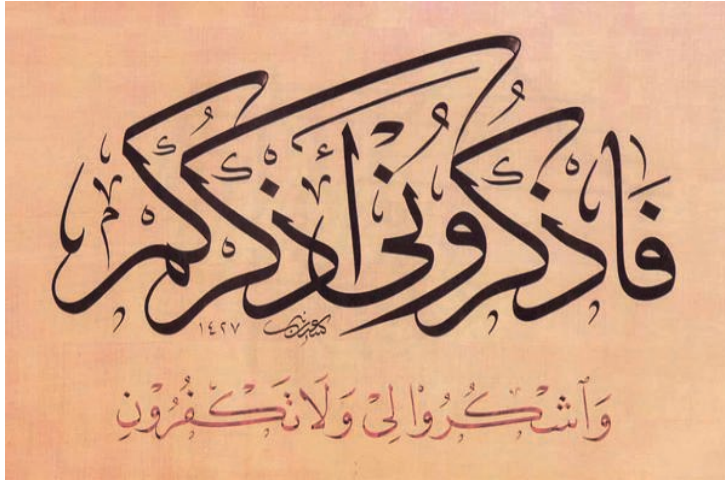 فَاذْكُرُونِي أَذْكُرْكُمْ
١٤٢٧
وَٱشْكُرُوا۟ لِى وَلَا تَكْفُرُونِ